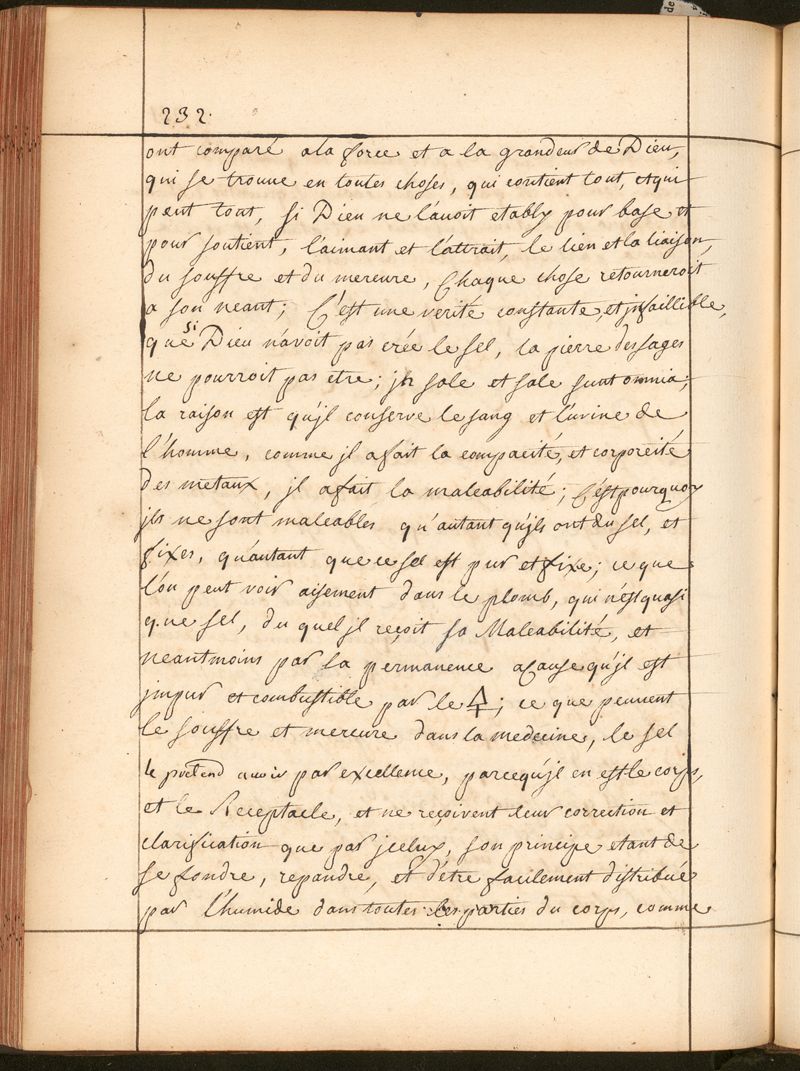 232.
ont comparé a la force et a la grandeur de Dieu,
qui se trouve en toutes choses, qui contient tout, et qui
peut tout, si Dieu ne l'auoit etably pour base et
pour soutient, l'aimant et l'attrait, le lien et la liaison,
du souffre et du mercure, Chaque chose retourneroit
a son neant; C'est une verité constante, et jnfaillible,
que si Dieu n'avoit pas crée le sel, la pierre des sages
ne pourroit pas etre; jn sole et sale sunt omnia;
la raison est qu'jl conserve le sang et l'urine de
l'homme, comme jl a fait la compacité, et corporeité
des metaux, jl a fait la maleabilité; C'est pourquoy
jls ne sont maleables qu'autant qu'jls ont du sel, et
fixes, qu'autant que ce sel est pur et fixe; ce que
l'on peut voir aisement dans le plomb, qui n'est quasi
que sel, du quel jl reçoit sa Maleabilité, et
neantmoins par la permanence a cause qu'jl est
jmpur et combustible par le 🜍; ce que peuuent
le souffre et mercure dans la medecine, le sel
le pretend auoir par excellence, parcequ'jl en est le corps,
et le Receptacle, et ne reçoivent leur correction et
clarification que par jceluy, son principe etant de
se fondre, repandre, et d'être facilement distribué
par l'humide dans toutes les parties du corps, comme
de